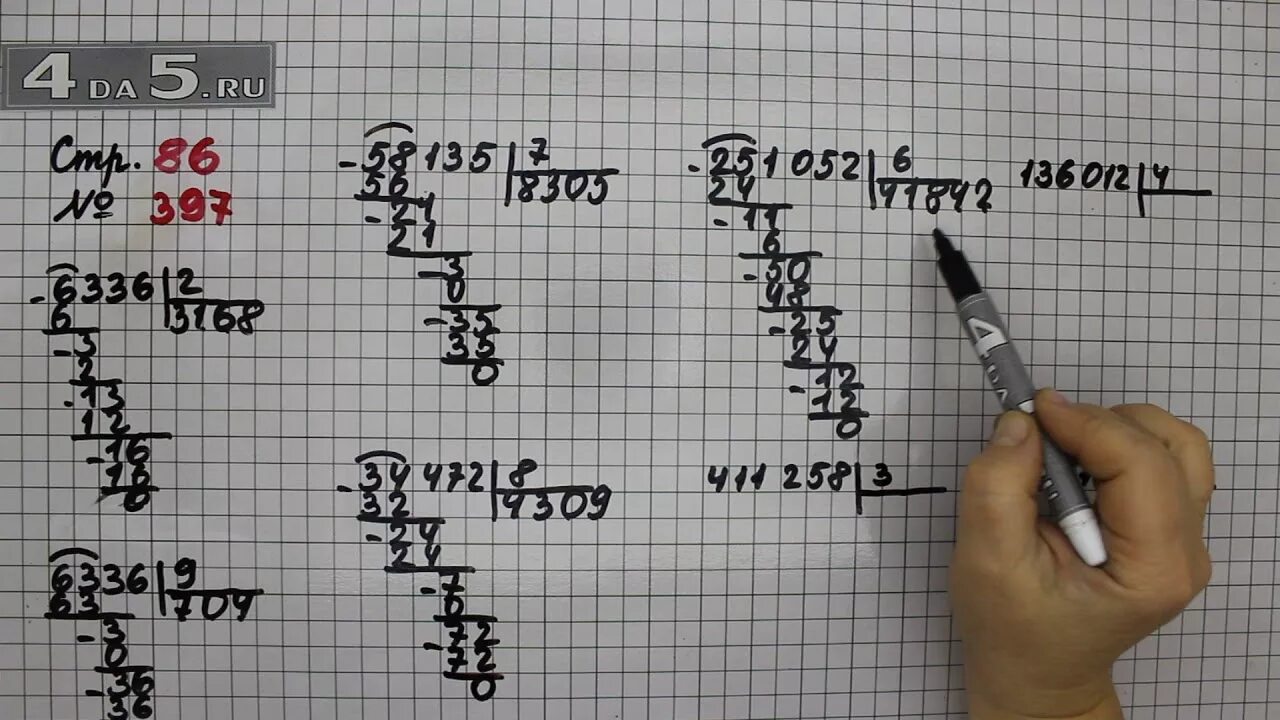 4 DA 5.RU
Стр. 86
№ 397
6336 | 2
3168
6
- 3
2
- 13
12
- 16
16
0
6336 | 9
704
63
- 3
0
- 36
36
- 58135 | 7
8305
56
- 21
21
- 3
0
- 35
35
0
- 34472 | 8
4309
32
- 24
24
- 7
0
- 72
72
0
- 251052 | 6
41842
24
- 11
6
- 50
48
- 25
24
- 12
12
0
411258 | 3
136012 | 4